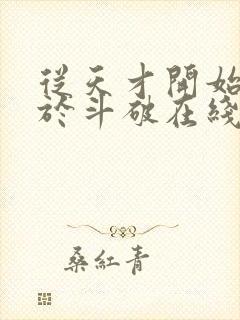 從天才開始
於斗破在綫
桑紅青